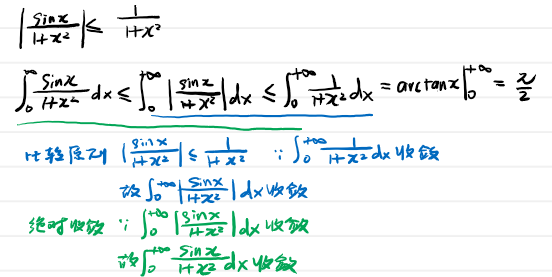 |sinx/1+x²| ≤ 1/1+x²
∫₀^∞ sinx/1+x² dx ≤ ∫₀^+∞ |sinx/1+x²| dx ≤ ∫₀^+∞ 1/1+x² dx = arctanx|₀^+∞ = π/2
比较原则 |sinx/1+x²| ≤ 1/1+x² ∵ ∫₀^+∞ 1/1+x² dx 收敛
故 ∫₀^+∞ |sinx/1+x²| dx 收敛
绝对收敛 ∵ ∫₀^+∞ |sinx/1+x²| dx 收敛
故 ∫₀^+∞ sinx/1+x² dx 收敛